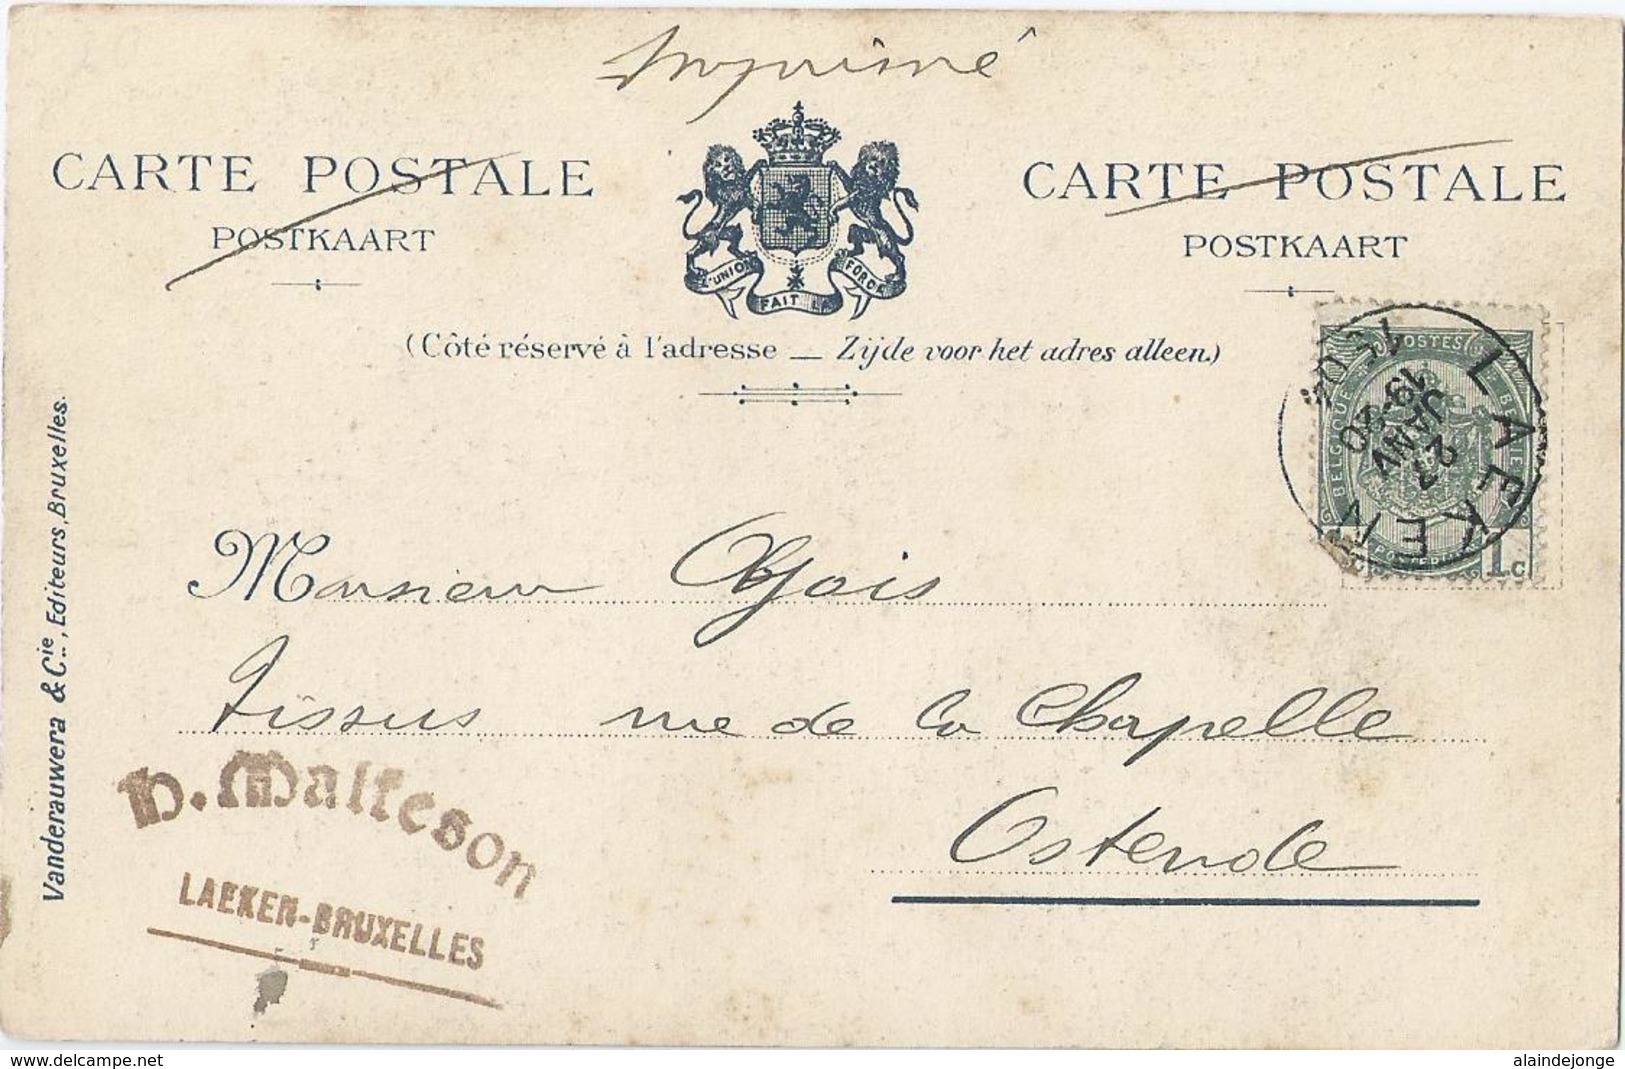 Imprimé
CARTE POSTALE
POSTKAART
L'UNION FAIT LA FORCE
CARTE POSTALE
POSTKAART
(Côté réservé à l'adresse — Zijde voor het adres alleen)
POSTES
BELGIQUE
BELGIE
1c
LAEKEN
27
JANV
19-20
Monsieur
Tissus rue de la Chapelle
Ostende
H. Matteson
LAEKEN-BRUXELLES
Vanderauwera & Cie., Editeurs, Bruxelles.
www.delcampe.net
alaindejonge